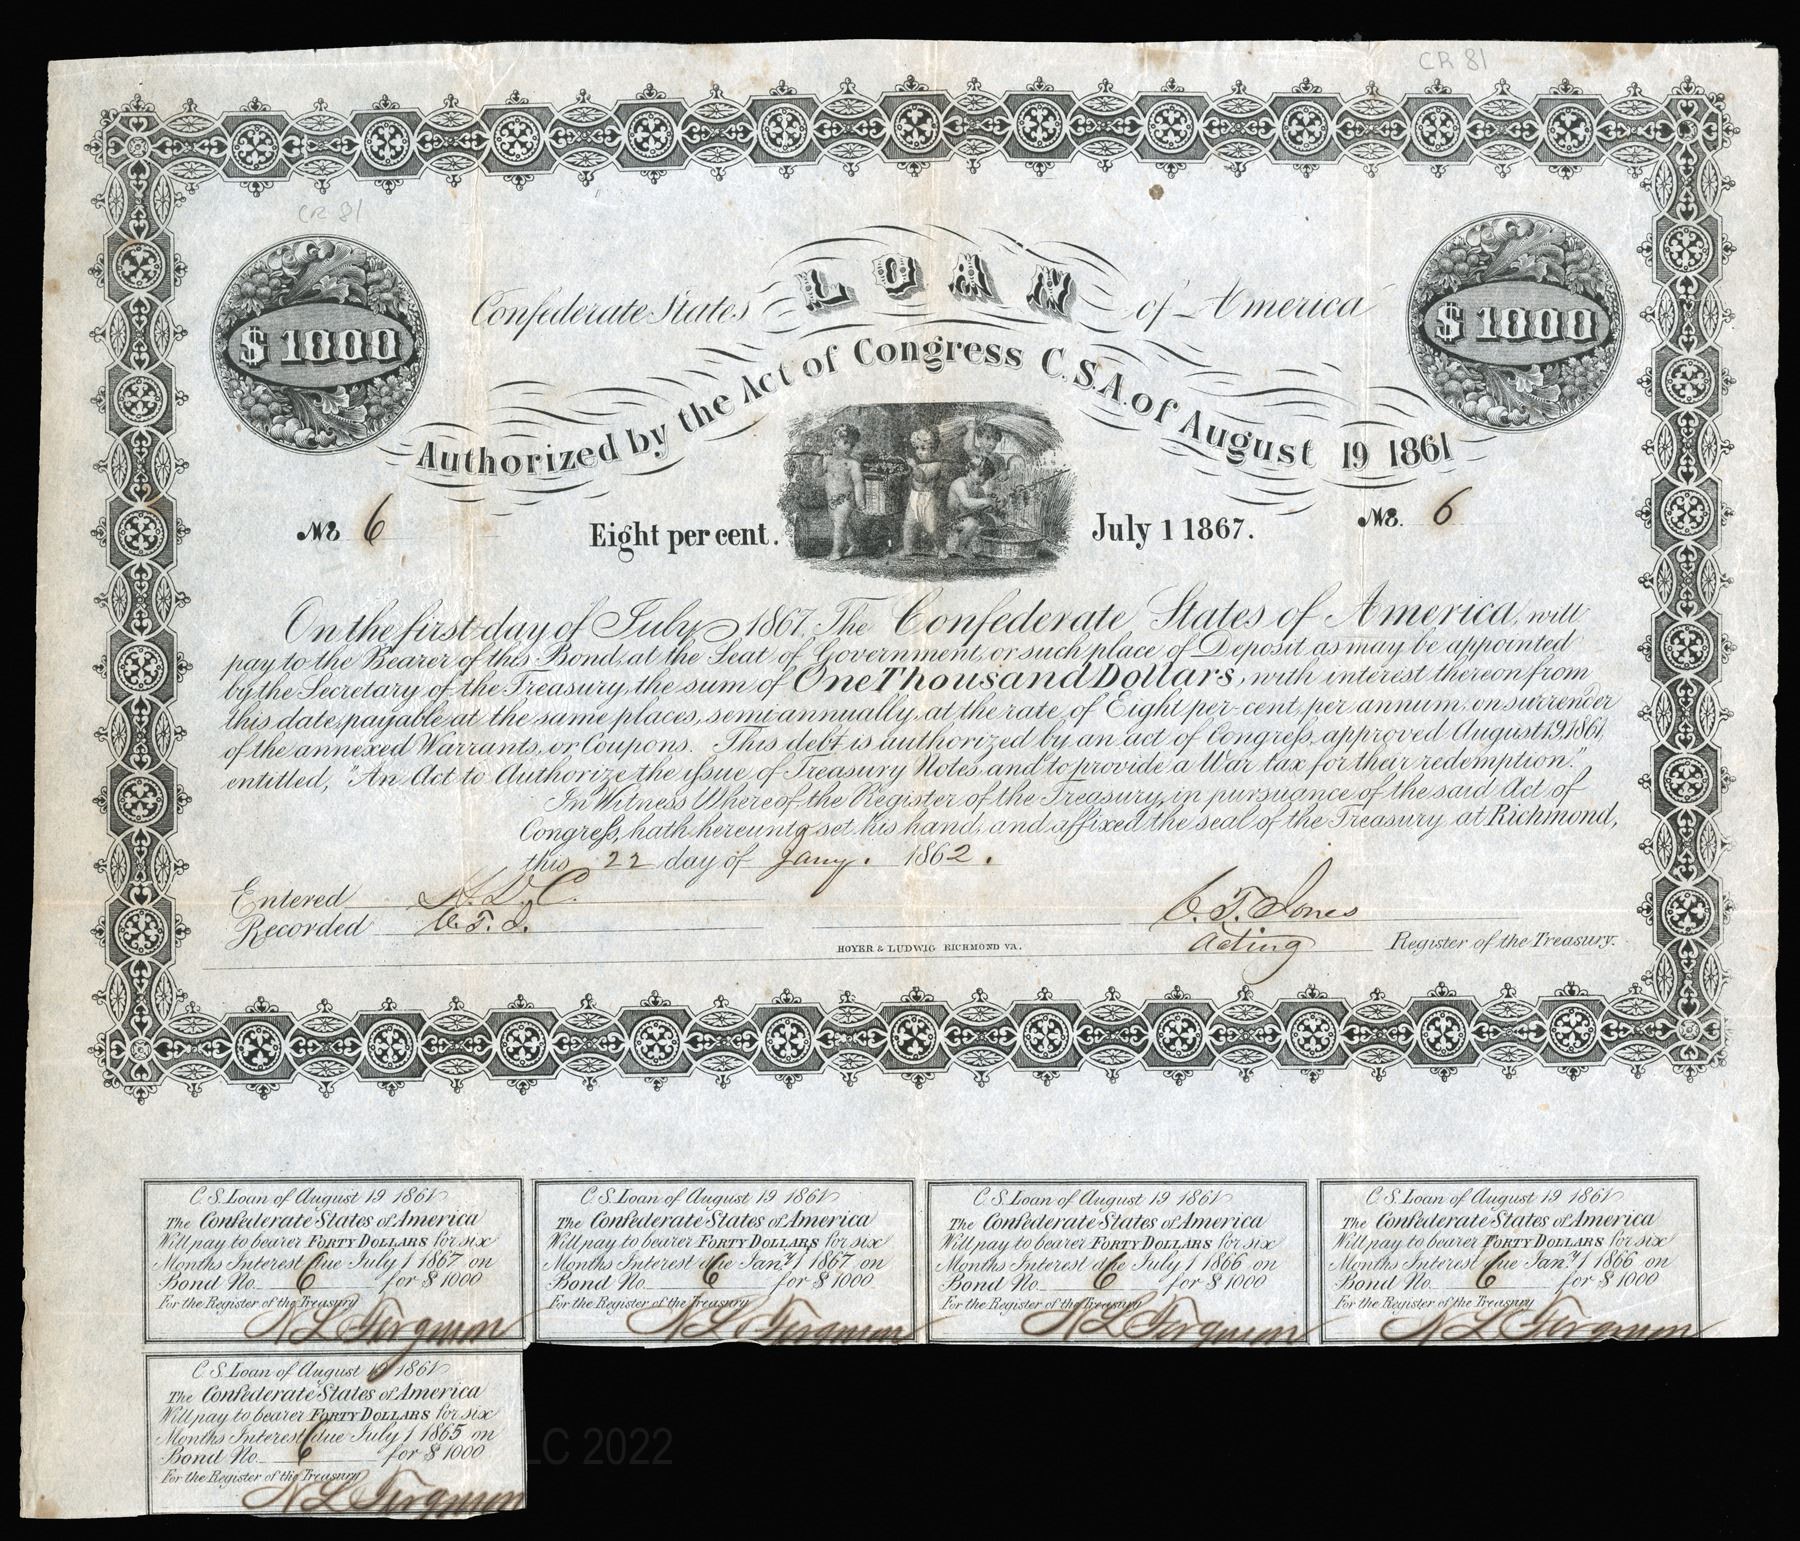 CR 81
CR 81
LOAN
Confederate States of America
$ 1000
$ 1000
Authorized by the Act of Congress C.S.A. of August 19 1861
No 6
Eight per cent.
July 1 1867.
No. 6
On the first day of July 1867, The Confederate States of America, will
pay to the Bearer of this Bond, at the Seat of Government, or such place of Deposit as may be appointed
by the Secretary of the Treasury, the sum of One Thousand Dollars, with interest thereon from
this date, payable at the same places, semi annually, at the rate of Eight per-cent, per annum, on surrender
of the annexed Warrants, or Coupons. This debt is authorized by an act of Congress, approved August 19, 1861,
entitled, "An Act to Authorize the issue of Treasury Notes, and to provide a War tax for their redemption."
In Witness Whereof, the Register of the Treasury, in pursuance of the said Act of
Congress, hath hereunto set his hand, and affixed the seal of the Treasury, at Richmond,
this 22 day of Jany. 1862.
Entered H. D. C.
Recorded C. T. J.
C. T. Jones
Acting Register of the Treasury.
HOYER & LUDWIG RICHMOND VA.
C.S. Loan of August 19 1861
The Confederate States of America
Will pay to bearer FORTY DOLLARS for six
Months Interest due July 1 1867 on
Bond No. 6 for $ 1000
For the Register of the Treasury
N L Ferguson
C.S. Loan of August 19 1861
The Confederate States of America
Will pay to bearer FORTY DOLLARS for six
Months Interest due Jan.y 1 1867 on
Bond No. 6 for $ 1000
For the Register of the Treasury
N L Ferguson
C.S. Loan of August 19 1861
The Confederate States of America
Will pay to bearer FORTY DOLLARS for six
Months Interest due July 1 1866 on
Bond No. 6 for $ 1000
For the Register of the Treasury
N L Ferguson
C.S. Loan of August 19 1861
The Confederate States of America
Will pay to bearer FORTY DOLLARS for six
Months Interest due Jan.y 1 1866 on
Bond No. 6 for $ 1000
For the Register of the Treasury
N L Ferguson
C.S. Loan of August 19 1861
The Confederate States of America
Will pay to bearer FORTY DOLLARS for six
Months Interest due July 1 1865 on
Bond No. 6 for $ 1000
For the Register of the Treasury
N L Ferguson
LC 2022